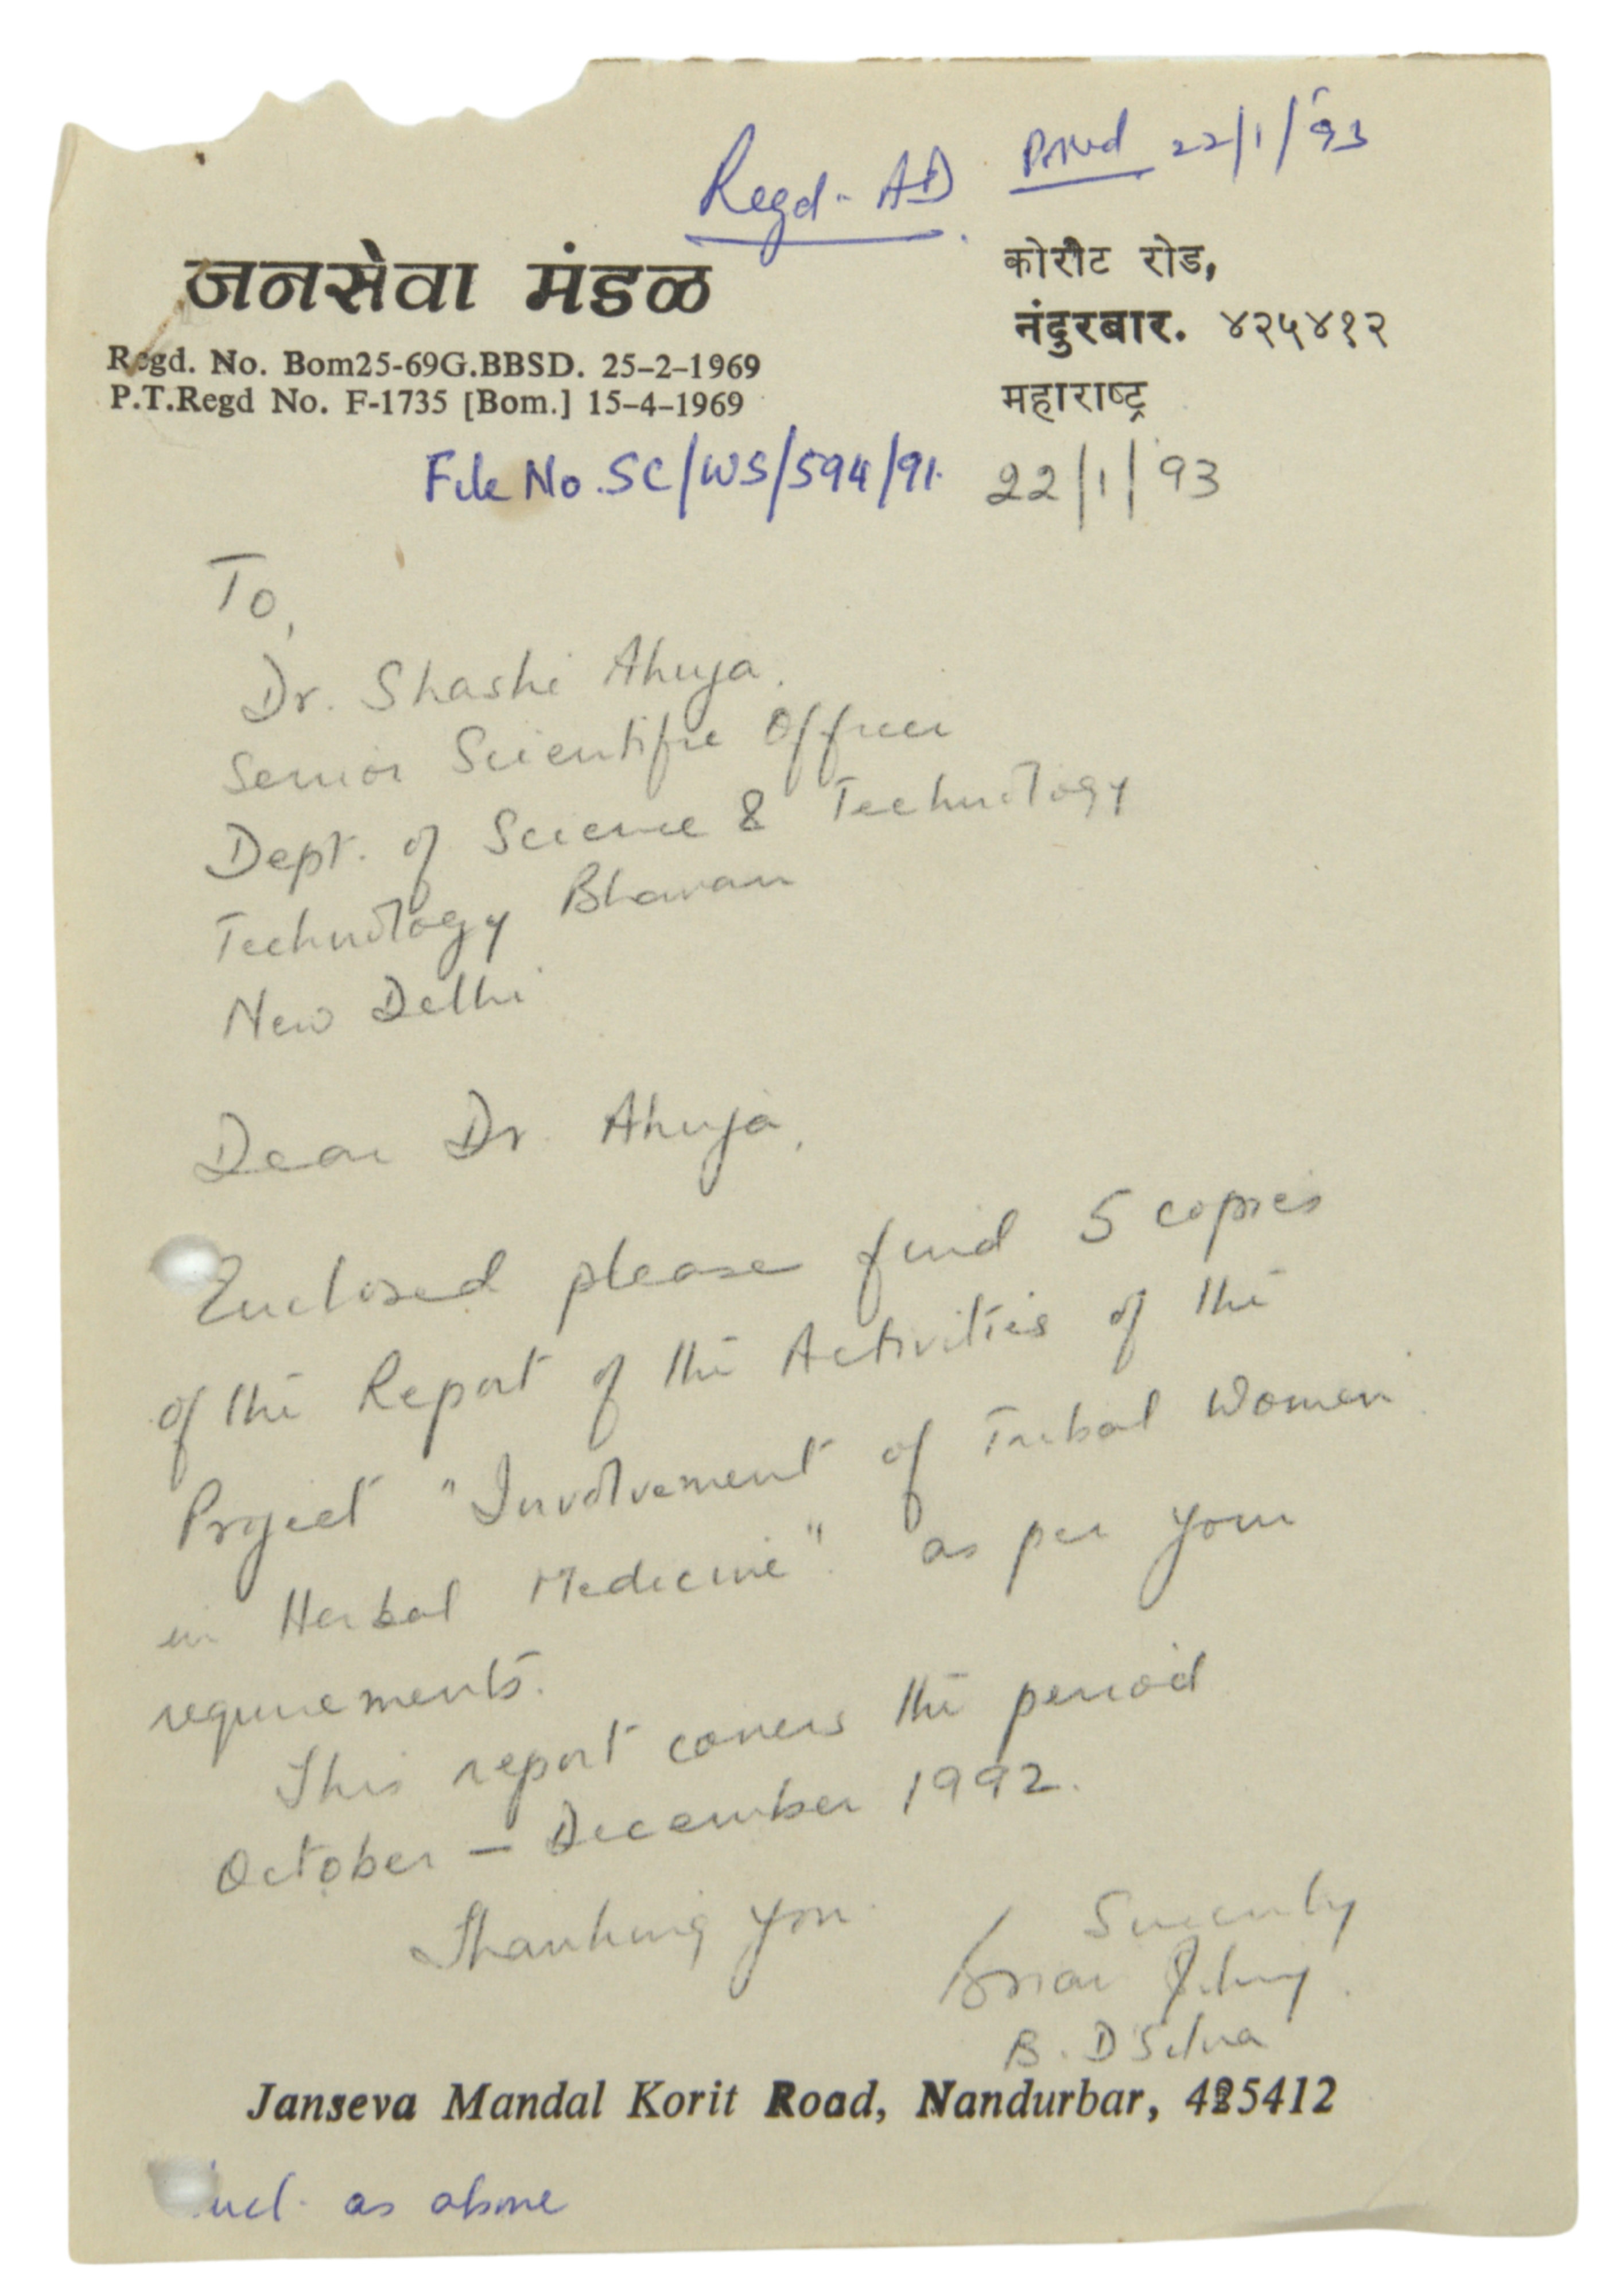 Regd - AD Posted 22/1/'93
जनसेवा मंडळ
कोरीट रोड,
नंदुरबार. ४२५४१२
महाराष्ट्र
Regd. No. Bom25-69G.BBSD. 25-2-1969
P.T.Regd No. F-1735 [Bom.] 15-4-1969
File No. SC/WS/594/91. 22/1/'93
To,
Dr. Shashi Ahuja.
Senior Scientific Officer
Dept. of Science & Technology
Technology Bhavan
New Delhi
Dear Dr. Ahuja,
Enclosed please find 5 copies
of the Report of the Activities of the
Project "Involvement of Tribal Women
in Herbal Medicine". as per your
requirements.
This report covers the period
October – December 1992.
Thanking you
Sincerely
B. D'Silva
Janseva Mandal Korit Road, Nandurbar, 425412
Encl. as above